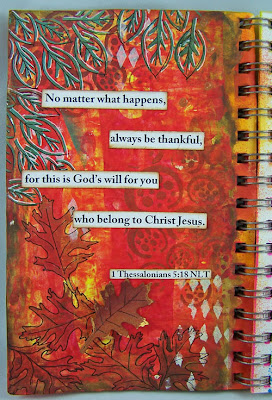 No matter what happens,
always be thankful,
for this is God's will for you
who belong to Christ Jesus.
1 Thessalonians 5:18 NLT